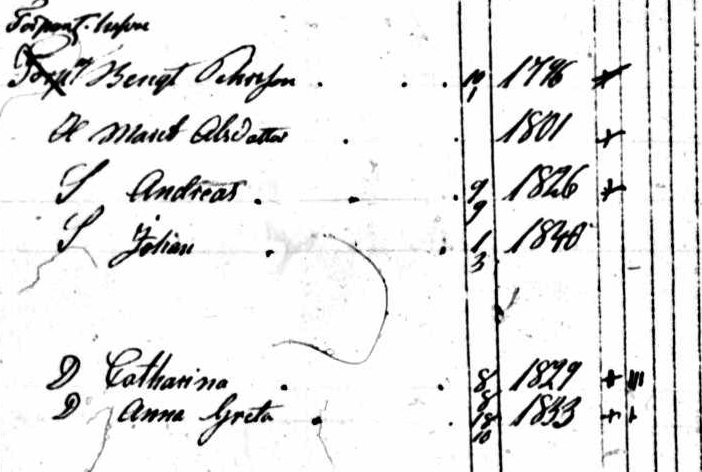 Torpet
Torp. Bengt Pehrsson . . . 10/1 1796 +
H Marit Alsdotter . . 1801 +
S Andreas . . . 9/9 1826 +
S Johan . . 1/3 1840
D Catharina . . 8/8 1829 + III
D Anna Greta . . 18/10 1833 + 1